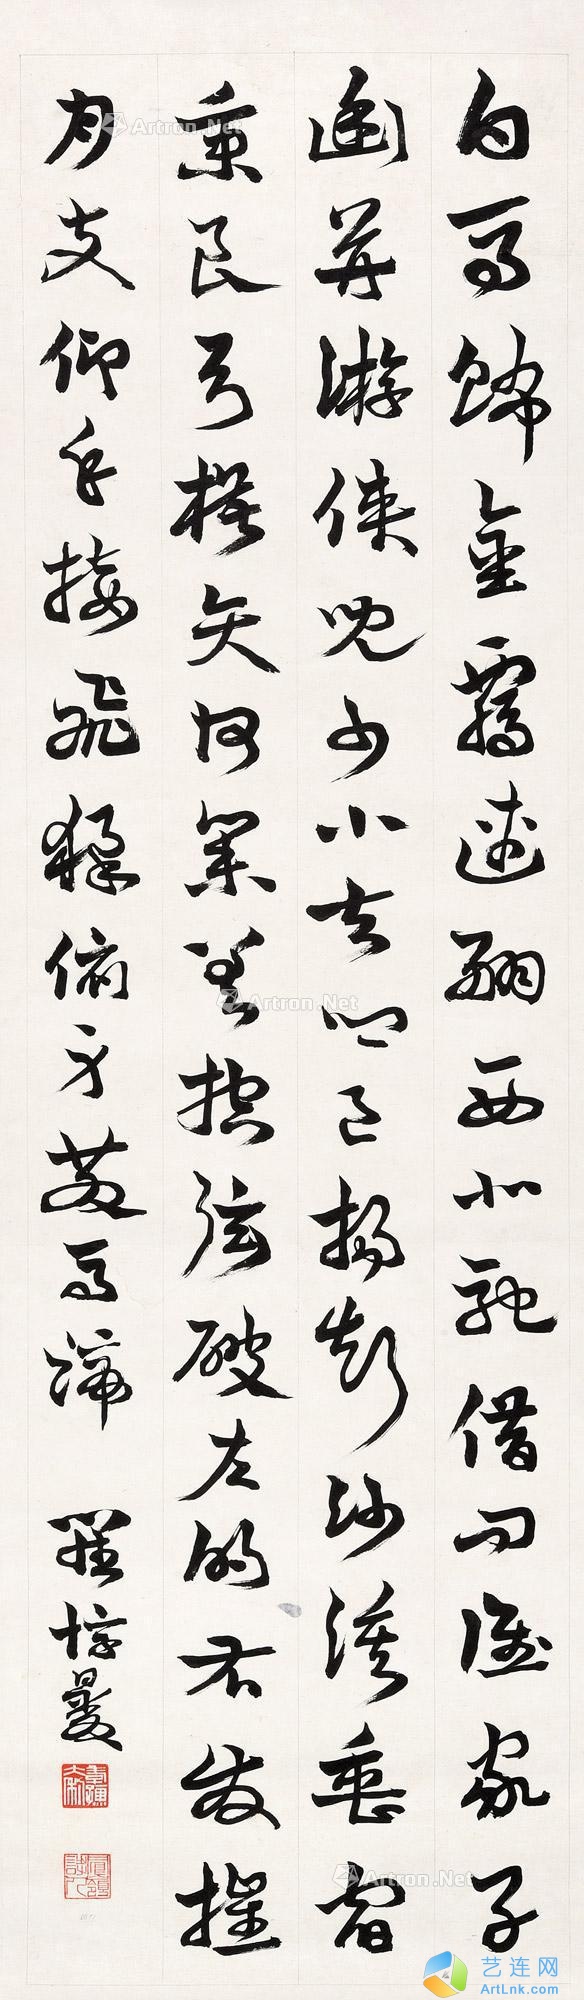 白马饰金羁连翩西北驰借问谁家子
幽并游侠儿少小去乡邑扬声沙漠垂宿
秉良弓楛矢何参差控弦破左的右发摧
月支仰手接飞猱俯身散马蹄
罗惇㬊
Artron.Net
Artron.Net
Artron.Net
Artron.Net
艺连网
ArtLnk.com